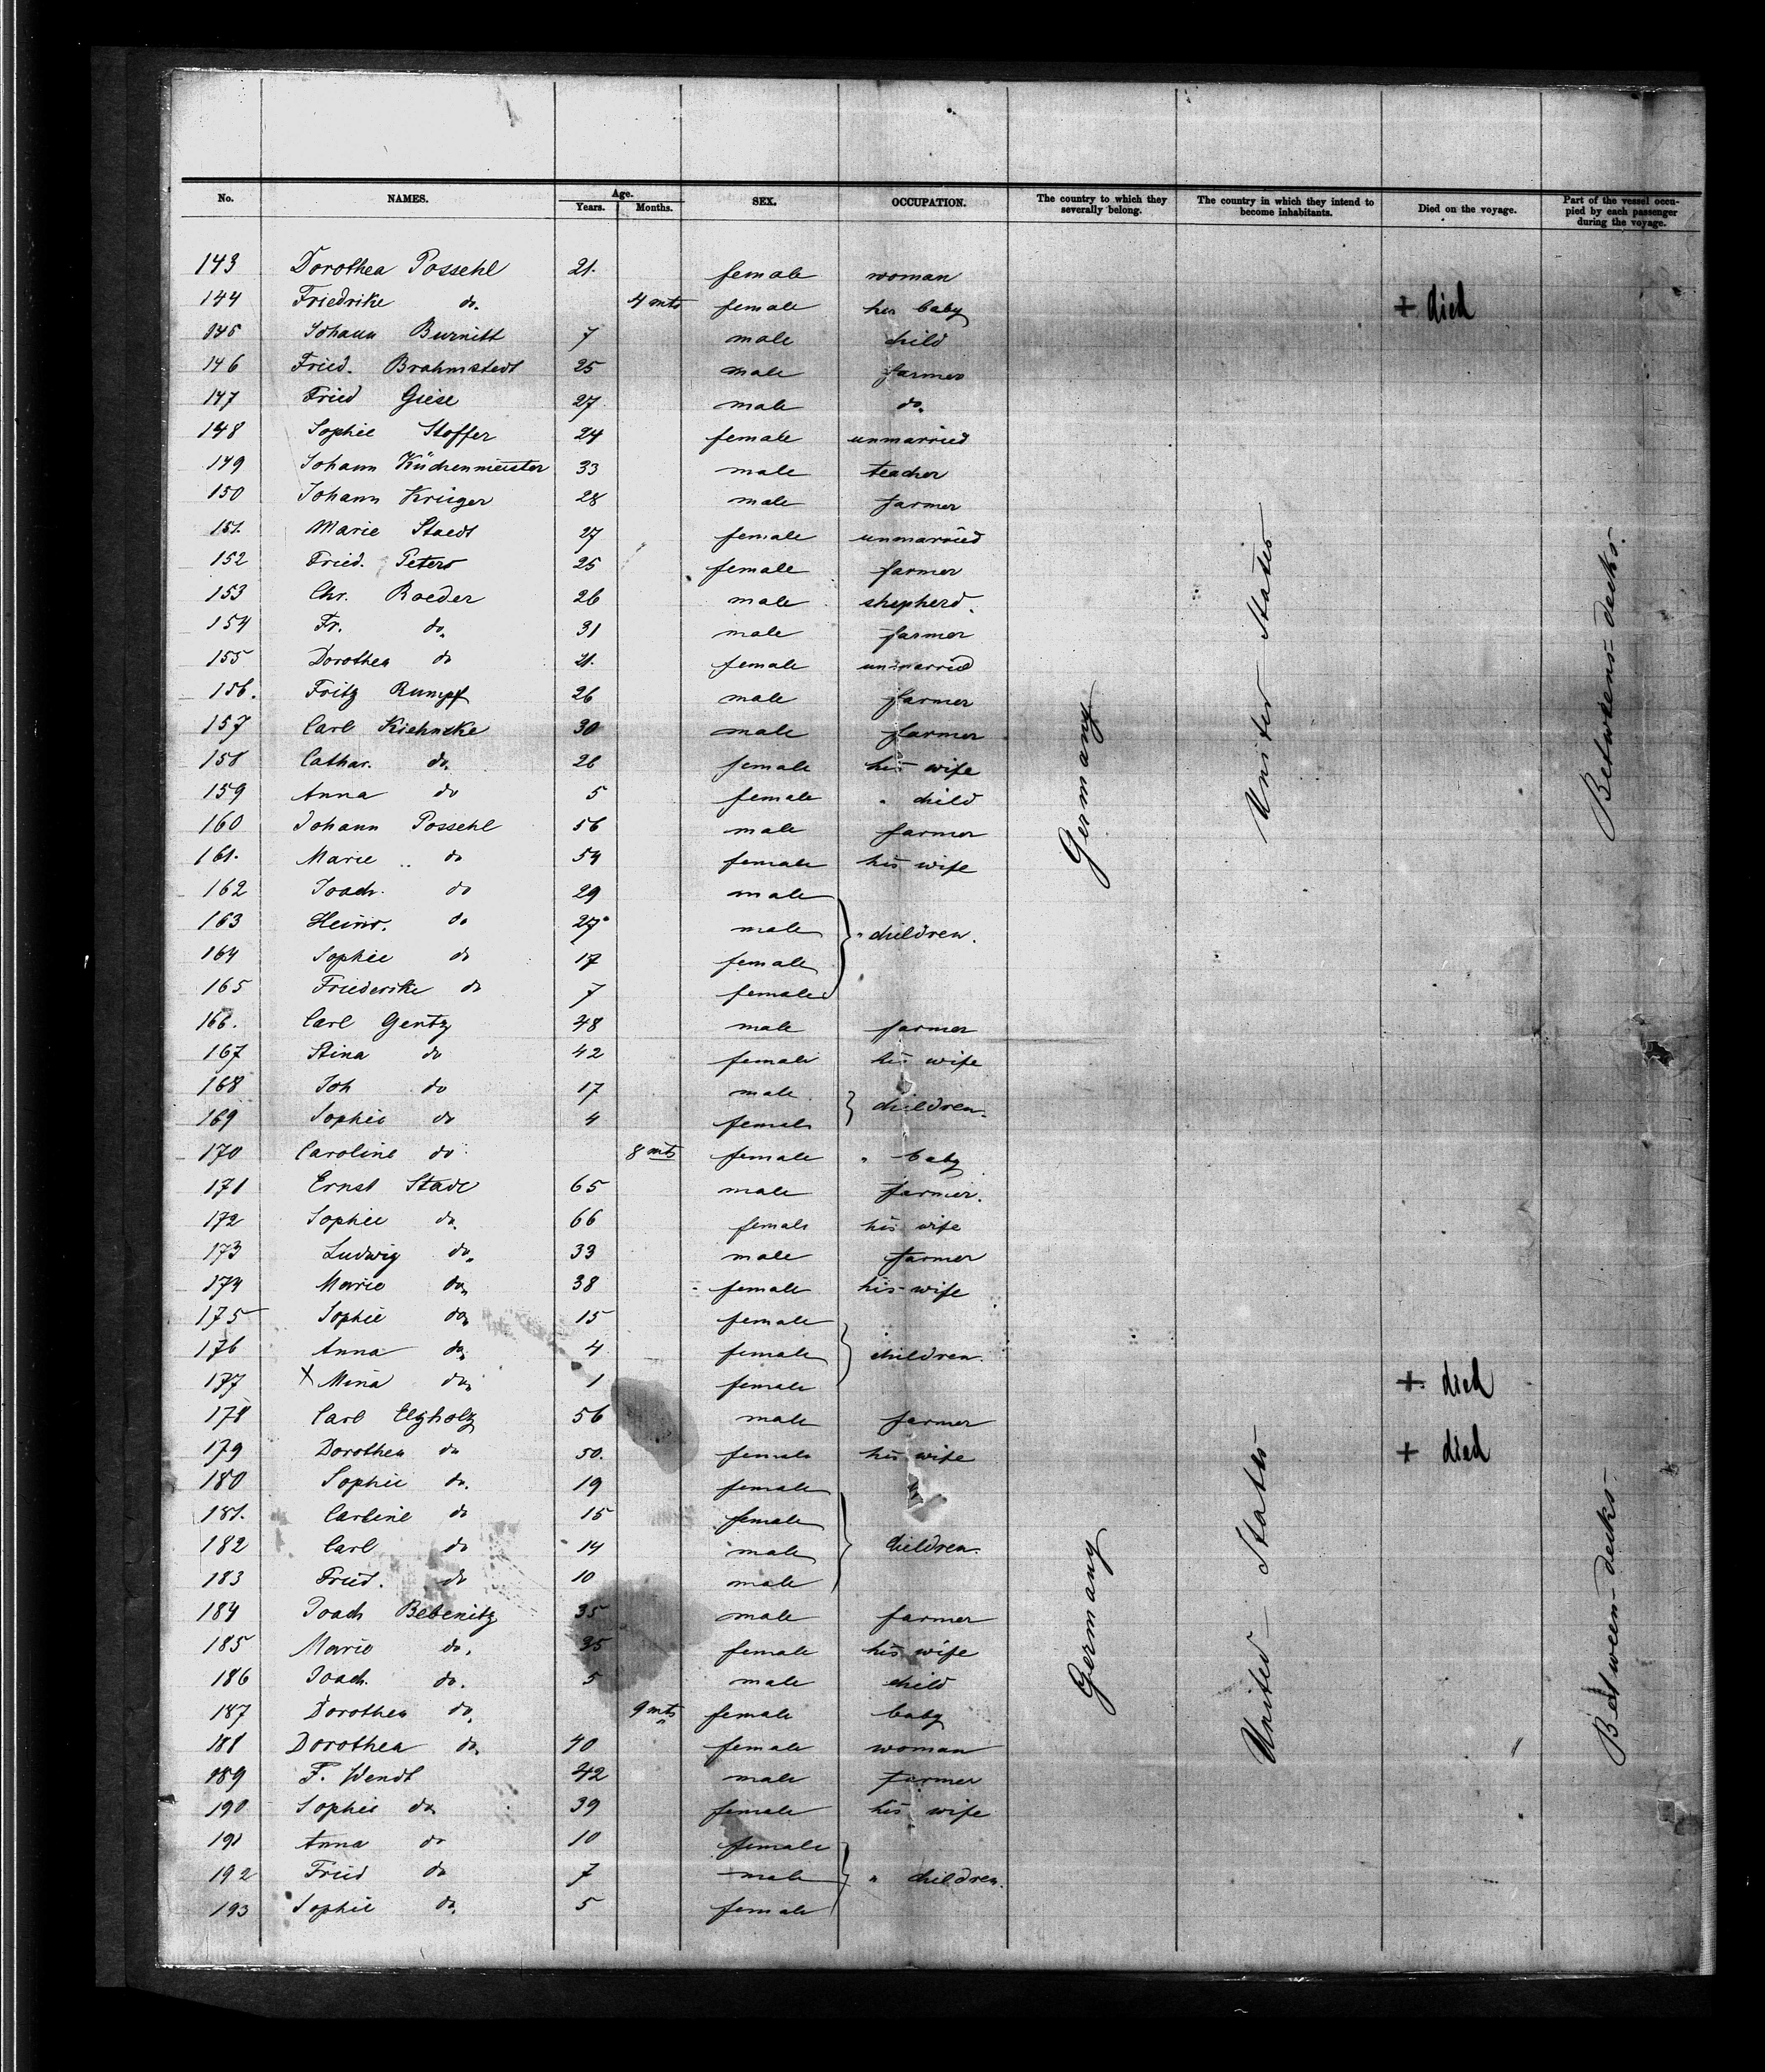 No. NAMES. Age. Years. Months. SEX. OCCUPATION. The country to which they severally belong. The country in which they intend to become inhabitants. Died on the voyage. Part of the vessel occupied by each passenger during the voyage.
143 Dorothea Possehl 21. female woman
144 Friedrike do. 4 mts female her baby + died
145 Johann Burnitt 7 male child
146 Fried. Brahmstedt 25 male farmer
147 Fried Giese 27 male do.
148 Sophie Stoffer 24 female unmarried
149 Johann Küchenmeister 33 male teacher
150 Johann Krüger 28 male farmer
151. Marie Staedt 27 female unmarried
152 Fried. Peters 25 female farmer
153 Chr. Roeder 26 male shepherd.
154 Fr. do. 31 male farmer
155 Dorothea do 21. female unmarried
156. Fritz Rumpf 26 male farmer
157 Carl Kiehncke 30 male farmer
158 Cathar. do. 26 female his wife
159 Anna do 5 female " child
160 Johann Possehl 56 male farmer
161. Marie do 54 female his wife
162 Joach. do 29 male
163 Heinr. do 27 male " children.
164 Sophie do 17 female
165 Friederike do 7 female
166. Carl Gentz 48 male farmer
167 Stina do 42 female his wife
168 Joh do 17 male children.
169 Sophie do 4 female
170 Caroline do 8 mts female " baby
171 Ernst Stade 65 male farmer.
172 Sophie do. 66 female his wife
173 Ludwig do. 33 male farmer
174 Marie do. 38 female his wife
175 Sophie do. 15 female
176 Anna do. 4 female children.
177 x Mina do. 1 female + died
178 Carl Elgholz 56 male farmer
179 Dorothea do 50. female his wife + died
180 Sophie do. 19 female
181. Carline do 15 female
182 Carl do 14 male children.
183 Fried. do 10 male
184 Joach Bebenitz 35 male farmer
185 Marie do. 35 female his wife
186 Joach. do. 5 male child
187 Dorothea do. 9 mts female baby
188 Dorothea do. 40 female woman
189 F. Wendt 42 male farmer
190 Sophie do. 39 female his wife
191 Anna do 10 female
192 Fried do 7 male " children.
193 Sophie do. 5 female
Germany
United States
Between-decks.
Germany
United-States
Between-decks.